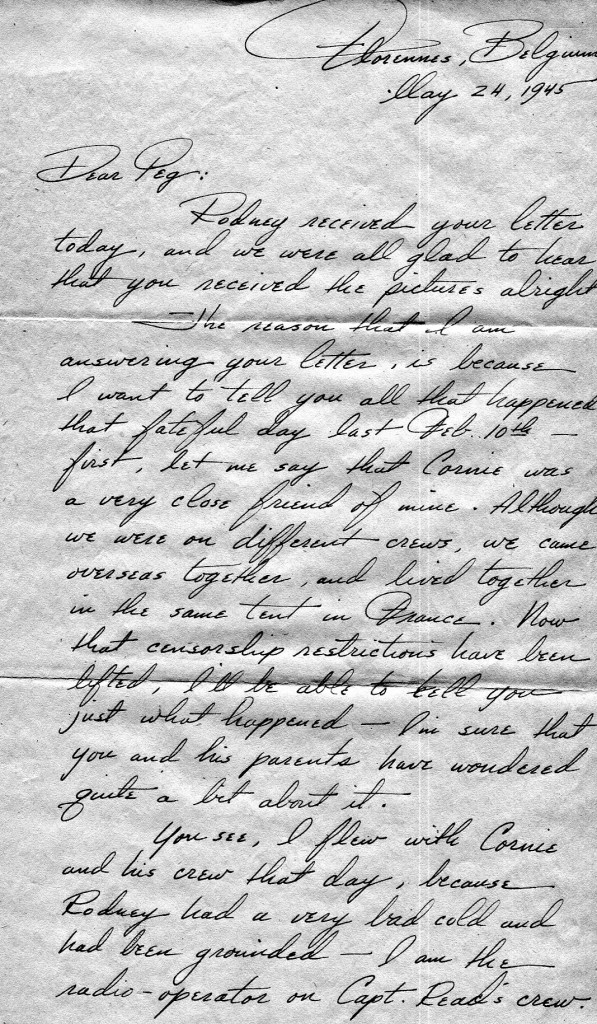 Florennes, Belgium
May 24, 1945
Dear Peg:
Rodney received your letter
today, and we were all glad to hear
that you received the pictures alright
The reason that I am
answering your letter, is because
I want to tell you all that happened
that fateful day last Feb. 10th —
first, let me say that Cornie was
a very close friend of mine. Although
we were on different crews, we came
overseas together, and lived together
in the same tent in France. Now
that censorship restrictions have been
lifted, I'll be able to tell you
just what happened — I'm sure that
you and his parents have wondered
quite a bit about it.
You see, I flew with Cornie
and his crew that day, because
Rodney had a very bad cold and
had been grounded — I am the
radio-operator on Capt. Read's crew.